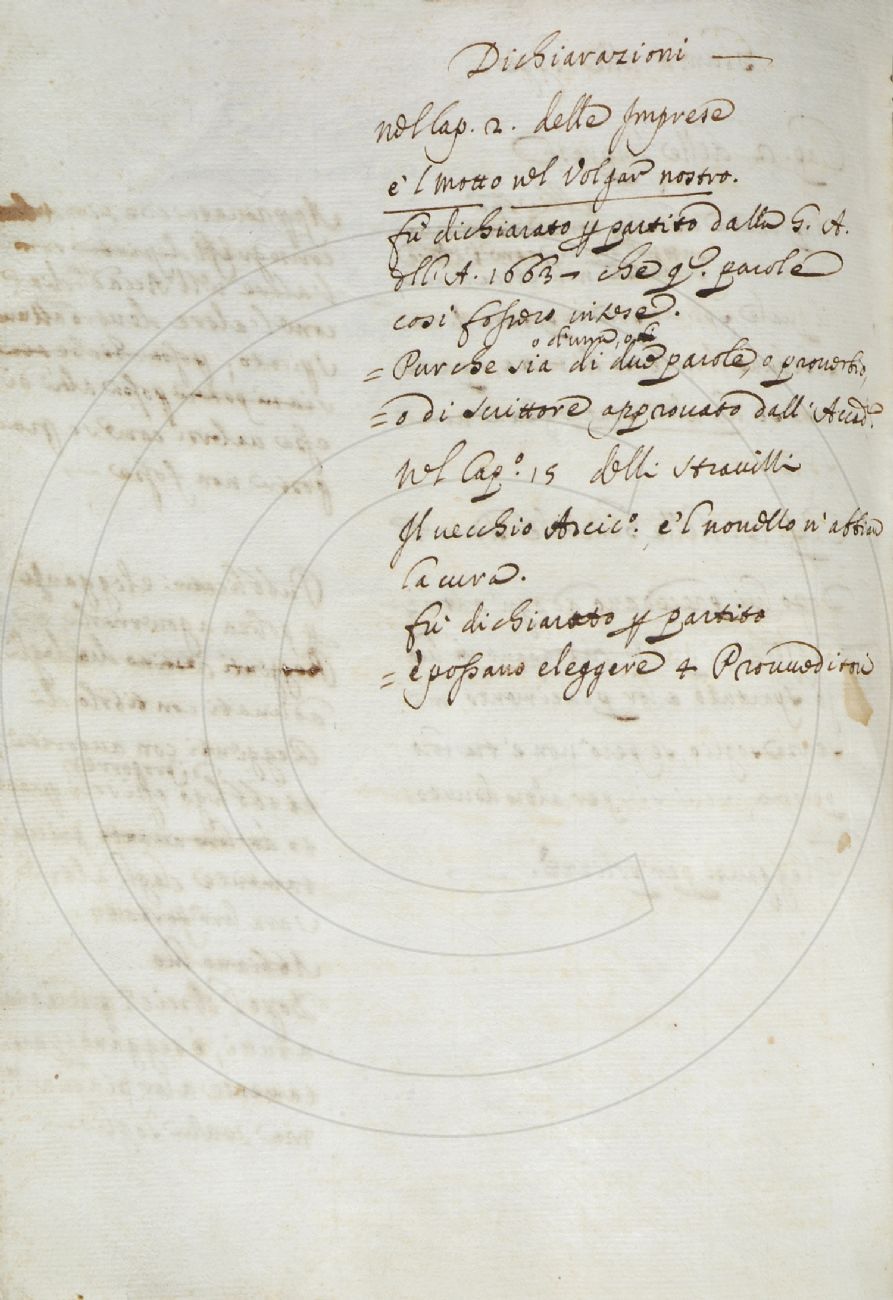 Dichiarazioni —
nel Cap. 2. delle Imprese
e 'l motto nel Volgar nostro.
fu dichiarato p partito dalla S. A.
dll. A. 1663 – che q.e parole
così fossero intese.
o d'una, o
= Purche sia di due parole, o prouerbio,
= o di scrittore approuato dall' Accad.a
nel Cap.o 15 delli Strauilli
Il uecchio Arcic.o e 'l nouello n' abbia
la cura.
fu dichiarato p partito
= e possano eleggere 4 Prouueditori